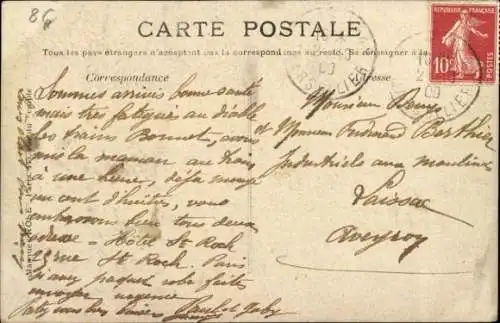 86
CARTE POSTALE
Tous les pays étrangers n'acceptent pas la correspondance au recto. Se renseigner à la
Correspondance
Adresse
RÉPUBLIQUE FRANÇAISE
10c
POSTES
Sommes arrivés bonne santé
mais très fatigués au diable
les trains Bonnet, avons
mis la maman au train
à une heure, déja mangé
un cent d'huitres, vous
embrassons bien tous deux
adresse = Hôtel St Roch
25 rue St Roch. Paris
si avez paquet robe faites
envoyer urgence
Paul et Gaby
Monsieur Remy
et Monsieur Fréderic Barthier
Industriels aux moulins
Laissac
Aveyron